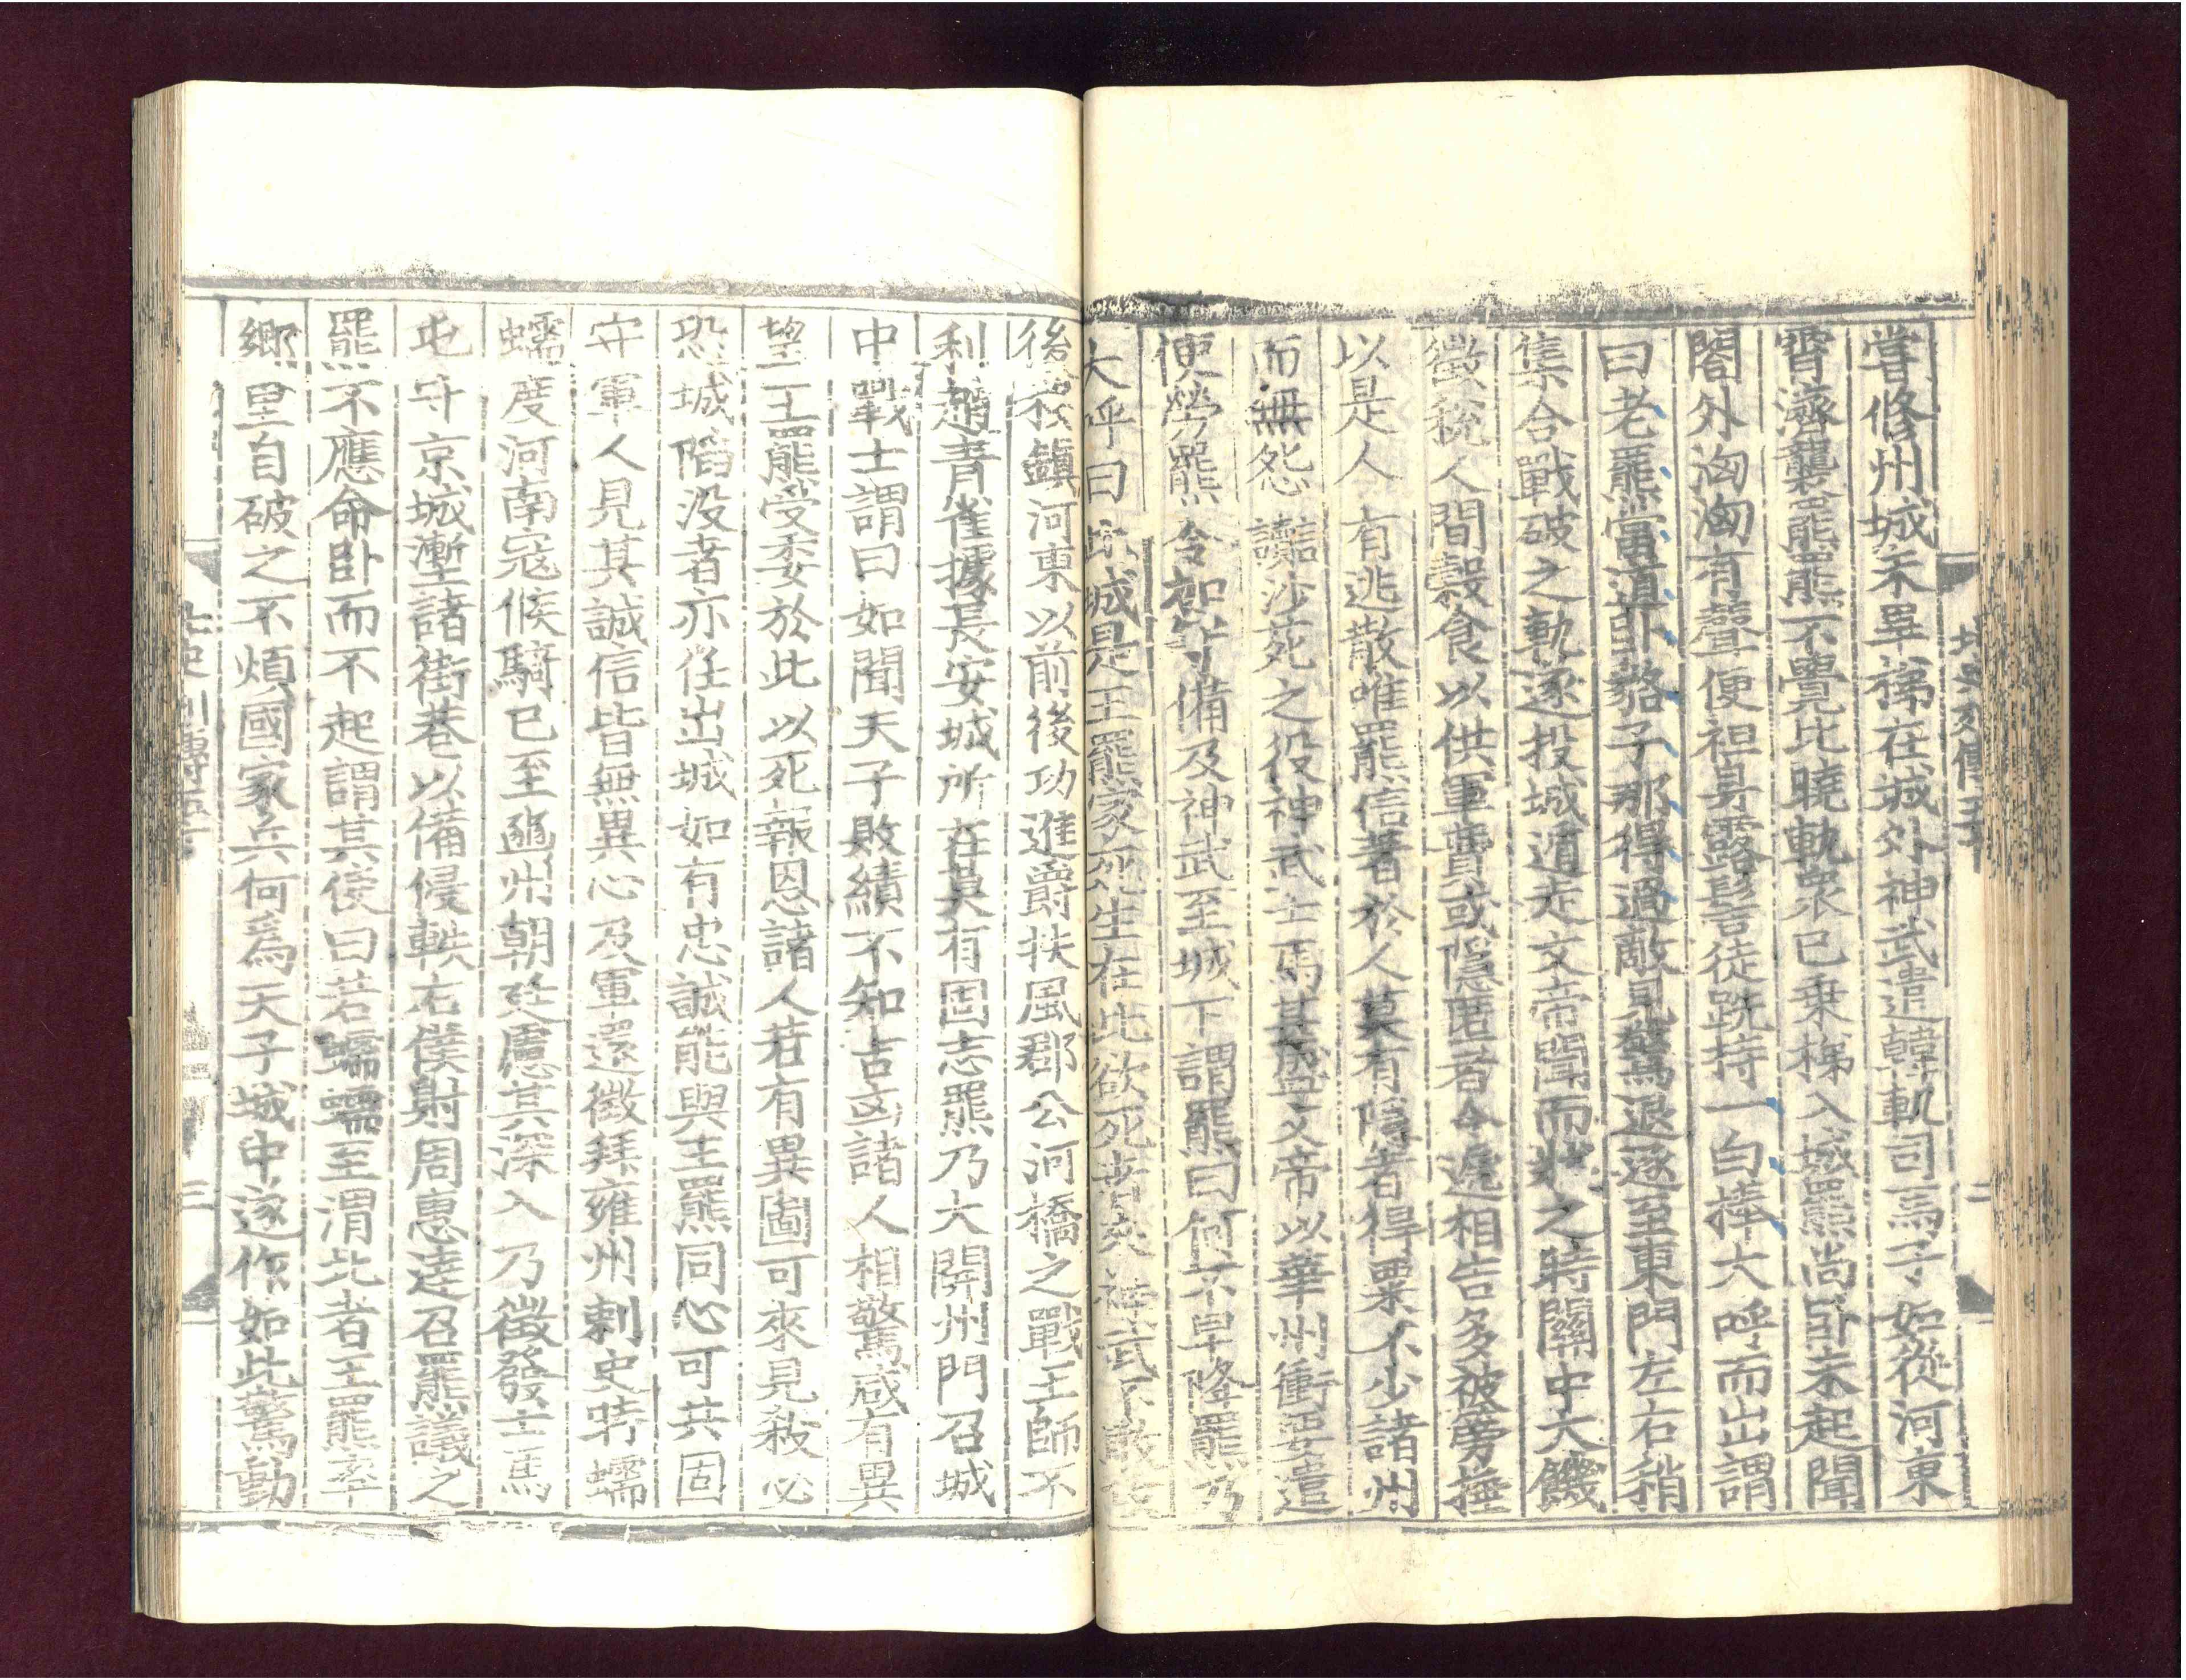 嘗修州城未畢梯在城外神武遣韓軌司馬子如從河東
宵濟襲羆羆不覺比曉軌衆已乗梯入城羆尚卧未起聞
閤外洶洶有聲便袒身露髻徒跣持一白捧大呼而出謂
曰老羆當道卧貉子那得過敵見驚退逐至東門左右稍
集合戰破之軌遂投城遁走文帝聞而壯之時關中大饑
徵税人間穀食以供軍費或隱匿者令遞相告多被篣捶
以是人有逃散唯羆信著於人莫有隱者得粟不少諸州
而無怨讟沙苑之役神武士馬甚盛文帝以華州衝要遣
使勞羆令加守備及神武至城下謂羆曰何不早降羆乃
大呼曰此城是王羆家死生在此欲死者來神武不敢攻
後移鎮河東以前後功進爵扶風郡公河橋之戰王師不
利趙青雀據長安城所在莫有固志羆乃大開州門召城
中戰士謂曰如聞天子敗績不知吉凶諸人相驚咸有異
望王羆受委於此以死報恩諸人若有異圖可來見殺必
恐城陷没者亦任出城如有忠誠能與王羆同心可共固
守軍人見其誠信皆無異心及軍還徵拜雍州刺史時蠕
蠕度河南寇候騎已至豳州朝廷慮其深入乃徵發士馬
屯守京城塹諸街巷以備侵軼右僕射周惠達召羆議之
羆不應命卧而不起謂其使曰若蠕蠕至渭北者王羆率
鄉里自破之不煩國家兵何爲天子城中遂作如此驚動